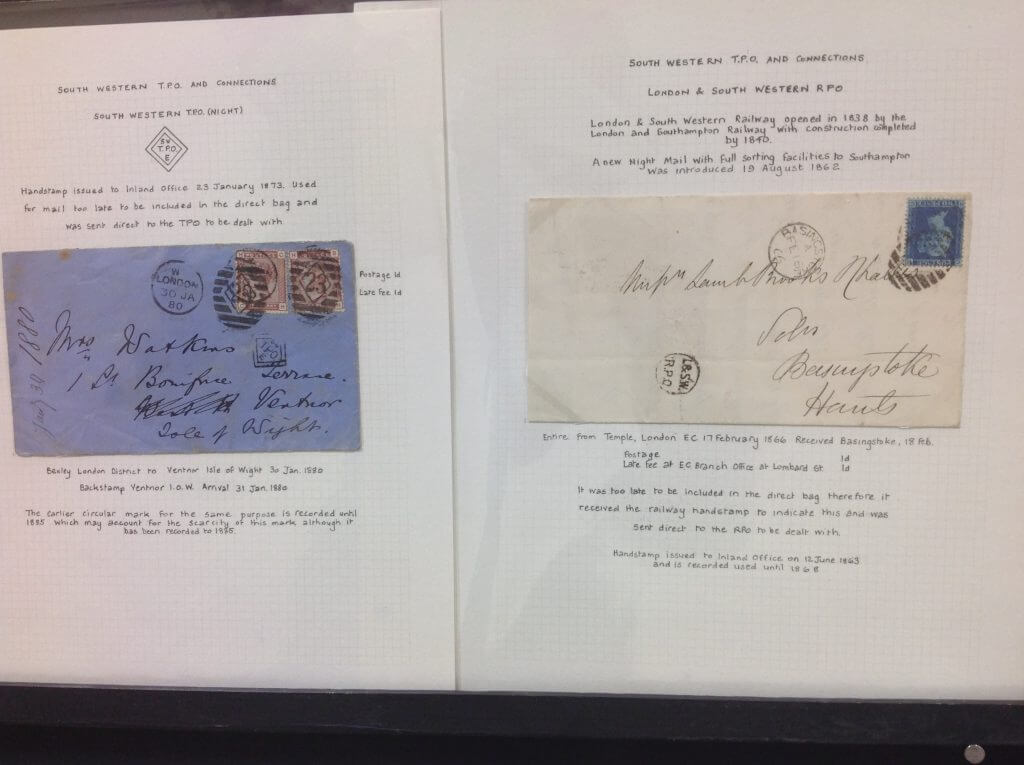 SOUTH WESTERN T.P.O. AND CONNECTIONS
SOUTH WESTERN T.P.O. (NIGHT)
SW
T.P.O.
E
Handstamp issued to Inland Office 23 January 1873. Used
for mail too late to be included in the direct bag and
was sent direct to the TPO to be dealt with.
W
LONDON
30 JA
80
23
Postage 1d
Late Fee 1d
TPO
Jany 30/1880
Mrs Watkins
1 St Boniface Terrace.
Ventnor
Isle of Wight.
Bexley London District to Ventnor Isle of Wight 30 Jan. 1880
Backstamp Ventnor I.O.W. Arrival 31 Jan. 1880
The earlier circular mark for the same purpose is recorded until
1885 which may account for the scarcity of this mark although it
has been recorded to 1885.
SOUTH WESTERN T.P.O. AND CONNECTIONS
LONDON & SOUTH WESTERN RPO
London & South Western Railway opened in 1838 by the
London and Southampton Railway with construction completed
by 1840.
A new Night Mail with full sorting facilities to Southampton
was introduced 19 August 1862
BASINGS
A
FE 18
66
Lamb Brooks
Solrs
Basingstoke
Hants
L&SW.
R.P.O.
Entire from Temple, London EC 17 February 1866 Received Basingstoke, 18 Feb.
Postage 1d
Late Fee at EC Branch Office at Lombard St. 1d
It was too late to be included in the direct bag therefore it
received the railway handstamp to indicate this and was
sent direct to the RPO to be dealt with.
Handstamp issued to Inland Office on 12 June 1863
and is recorded used until 1868